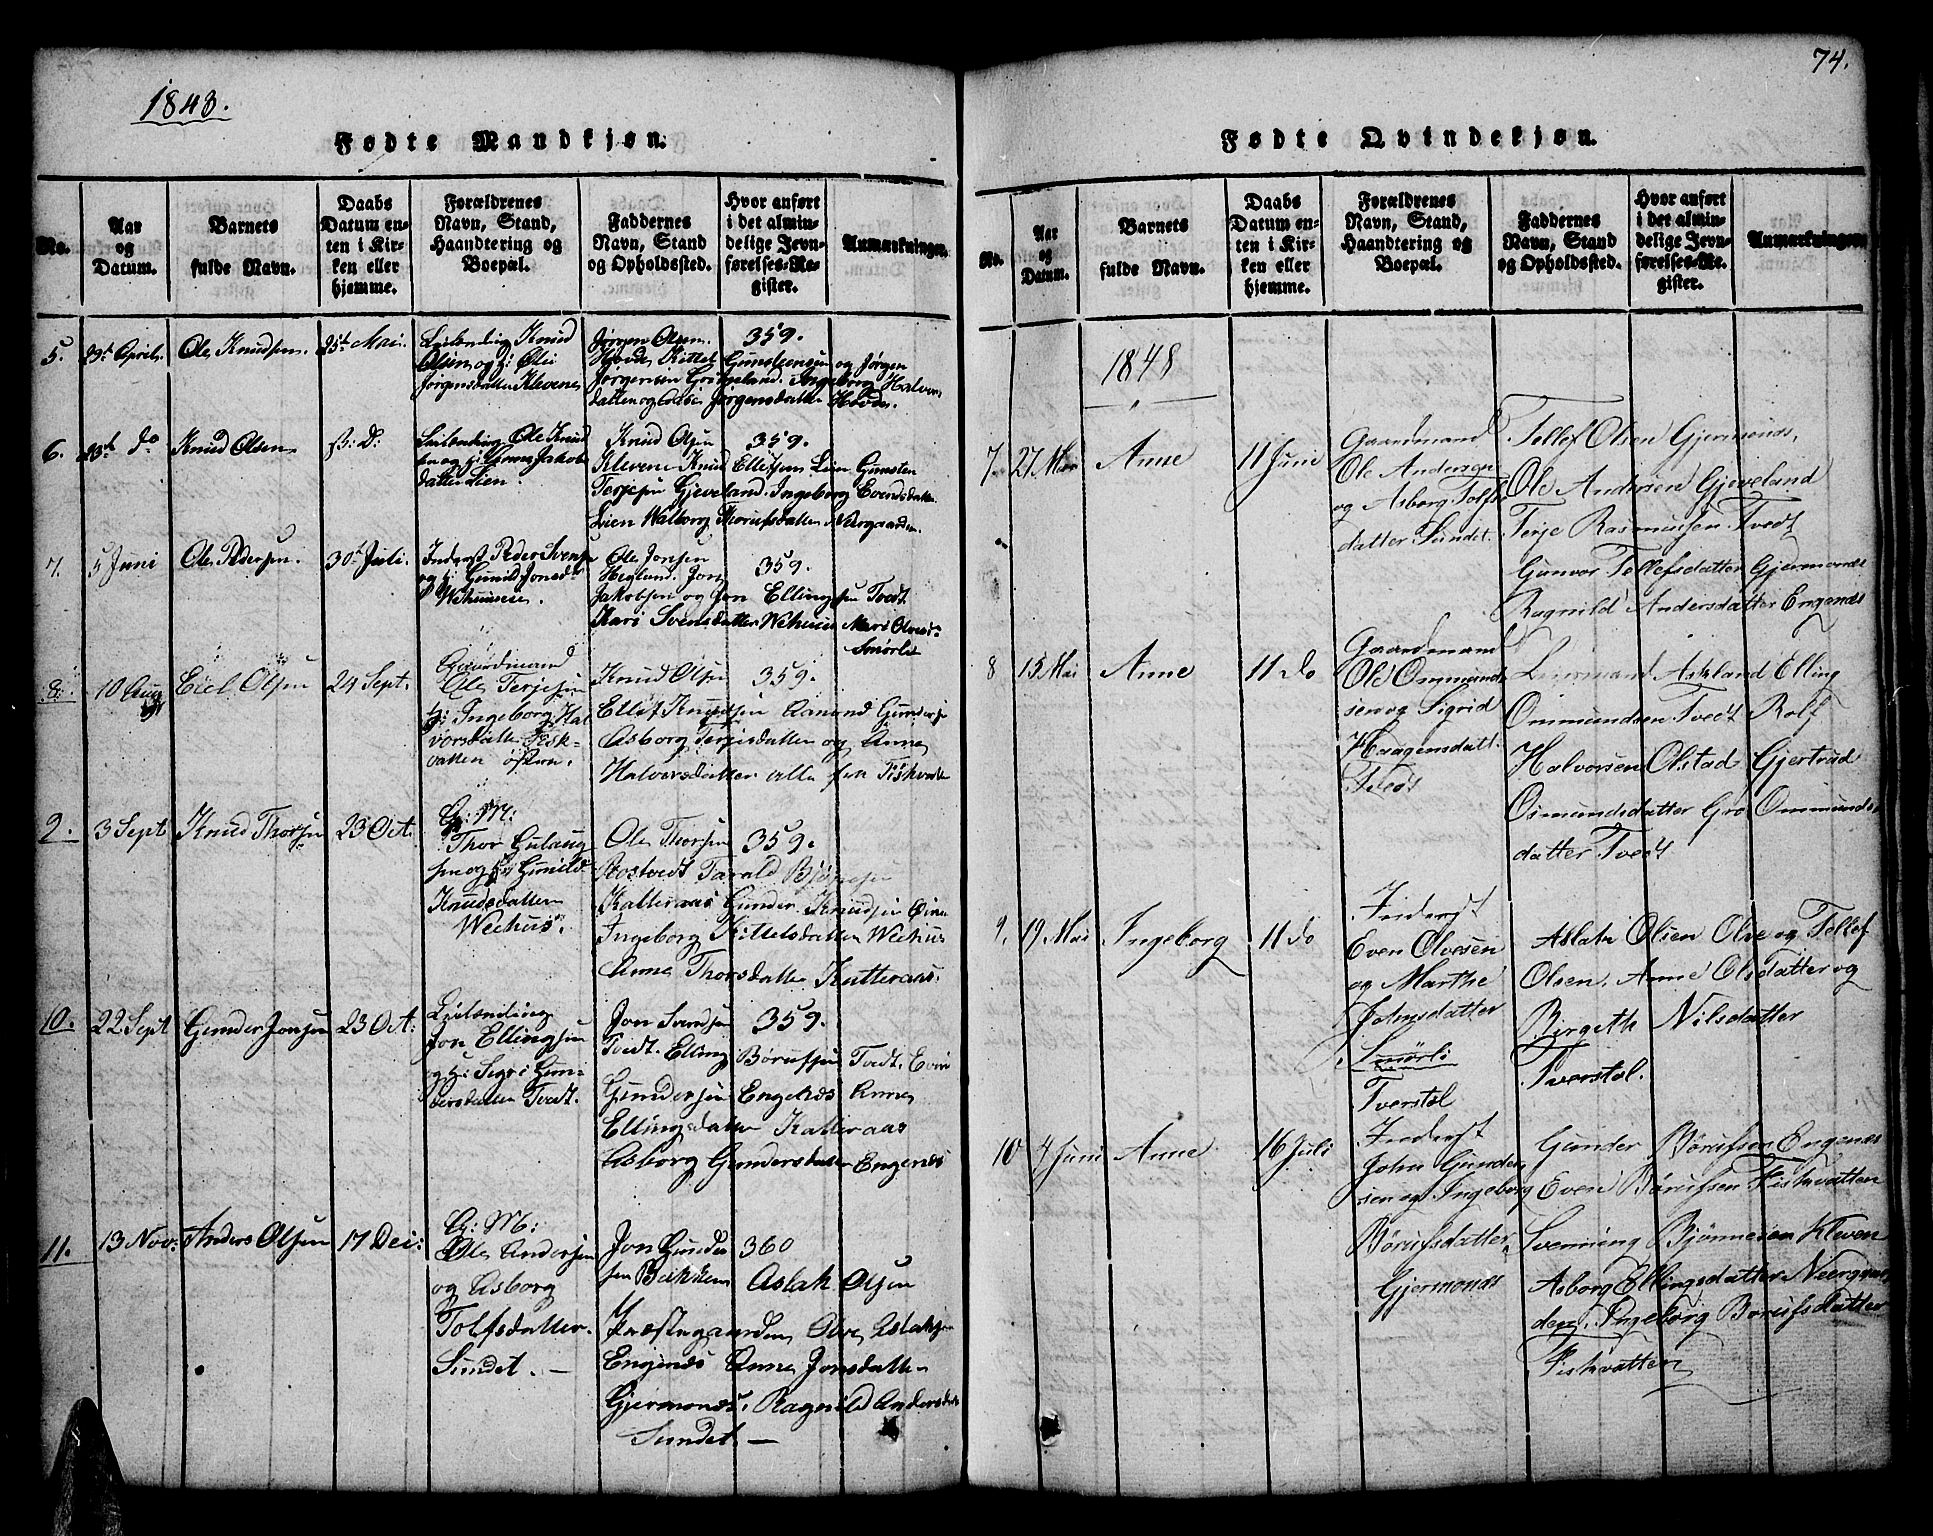 74.
1843.
Fødte Mandkjøn.
No.
Aar og Datum.
Barnets fulde Navn.
Daabs Datum enten i Kirken eller hjemme.
Forældrenes Navn, Stand, Haandtering og Boepæl.
Faddernes Navn, Stand og Opholdssted.
Hvor anført i det almindelige Jevnførelses-Register.
Anmærkninger.
5.
April.
Ole Knudsen.
25de Mai.
Leilending Knud
Olsen og
Jørgensdatter Klevene
Jørgen Olsen
359.
Hovde, Kittel Gunsteensen og Jørgen
Jørgensen Ingeborg Halvors
datter og Jørgensdatter Hovde.
6.
do
Knud Olsen
Leilending Ole Knud
sen og Jakobs
datter Lien.
Knud Olsen
359.
Klevene Knud Ellefsen Lien Gunsten
Terjesen Gjeveland. Ingeborg Evensdatter
Lien Walborg Neergaarden
7.
5 Juni
Ole Pedersen.
30te Juli.
Inderst Peder Svensen
og Gunild Jonsd
Wehuusene.
Ole Jonsen
359.
Hegland. Jon
Jakobsen og Jon Ellingsen Tvedt
Kari Svensdatter Wehuus Mari Olves
Smørli
8.
10 Aug
Eiel Olsen
24 Sept.
Gaardmand
Ole Terjesen
Ingeborg Hal
vorsdatter Fisk-
vatten østre.
Knud Olsen
359.
Ellef Knudsen Aanund Gundersen
Asborg Terjesdatter og Anne
Halvorsdatter alle fra Fiskvatten
9.
3 Sept
Knud Thorsen
23 Oct.
G: M:
Thor Gulaug
sen og Gunild
Knudsdatter
Weehus.
Ole Thorsen
359.
Rostvedt Tarald Bjønsen
Katteraas Gunder Knudsen
Ingeborg Kittelsdatter Weehus
Anne Thorsdatter Katteraas.
10.
22 Sept
Gunder Jonsen
23 Oct:
Leilending
Jon Ellingsen
og Sigri Gun-
dersdatter Tvedt.
Jon Svendsen
359.
Tvedt. Elling Børufsen Tvedt. Even
Gundersen Engenæs Anne
Ellingsdatter Katteraas
Asborg Gundersdatter Engenæs
11.
13 Nov:
Anders Olsen
17 Dec:
G: M:
Ole Andersen
og Asborg
Tolfsdatter.
Sundet. —
Jon Gunder
360
sen Bakken Aslak Olsen
Præstegaarden Olve Aslaksen
Engenæs Anne Jonsdatter
Gjermonæs. Ragnild Andersdatter
Sundet. —
Fødte Qvindekjøn.
No.
Aar og Datum.
Barnets fulde Navn.
Daabs Datum enten i Kirken eller hjemme.
Forældrenes Navn, Stand, Haandtering og Boepæl.
Faddernes Navn, Stand og Opholdssted.
Hvor anført i det almindelige Jevnførelses-Register.
Anmærkninger.
1848
7.
27 Mai
Anne
11 Juni
Gaardmand
Ole Andersen
og Asborg Tolfs
datter Sundet.
Tellef Olsen Gjermonæs,
Ole Andersen Gjeveland
Terje Rasmussen Tvedt
Gunvor Tellefsdatter Gjermonæs
Ragnild Andersdatter Engenæs
8
15 Mai
Anne
11 do
Gaardmand
Ole Ommund
sen og Sigrid
Haagensdatt.
Tvedt
Askland Elling
Ommundsen Tvedt Rolf
Halvorsen Olstad Gjertrud
Osmundsdatter Gro Ommunds
datter Tvedt
9.
19 Mai
Ingeborg
11 do
Inderst
Even Olvesen
og Marthe
Johnsdatter
Smørli
Tverstøl
Aslak Olsen Olve og Tellef
Olsen. Anne Olsdatter og
Birgeth Nilsdatter
Tverstøl.
10
4 Juni
Anne
16 Juli
Inderst
John Gunder
sen og Ingeborg
Børufsdatter
Gjermonæs
Gunder Børufsen Engenæs
Even Børufsen Fiskvatten
Svenning Bjønnesen Kleven
Asborg Ellingsdatter Neergaar
den. Ingeborg Børufsdatter
Fiskvatten